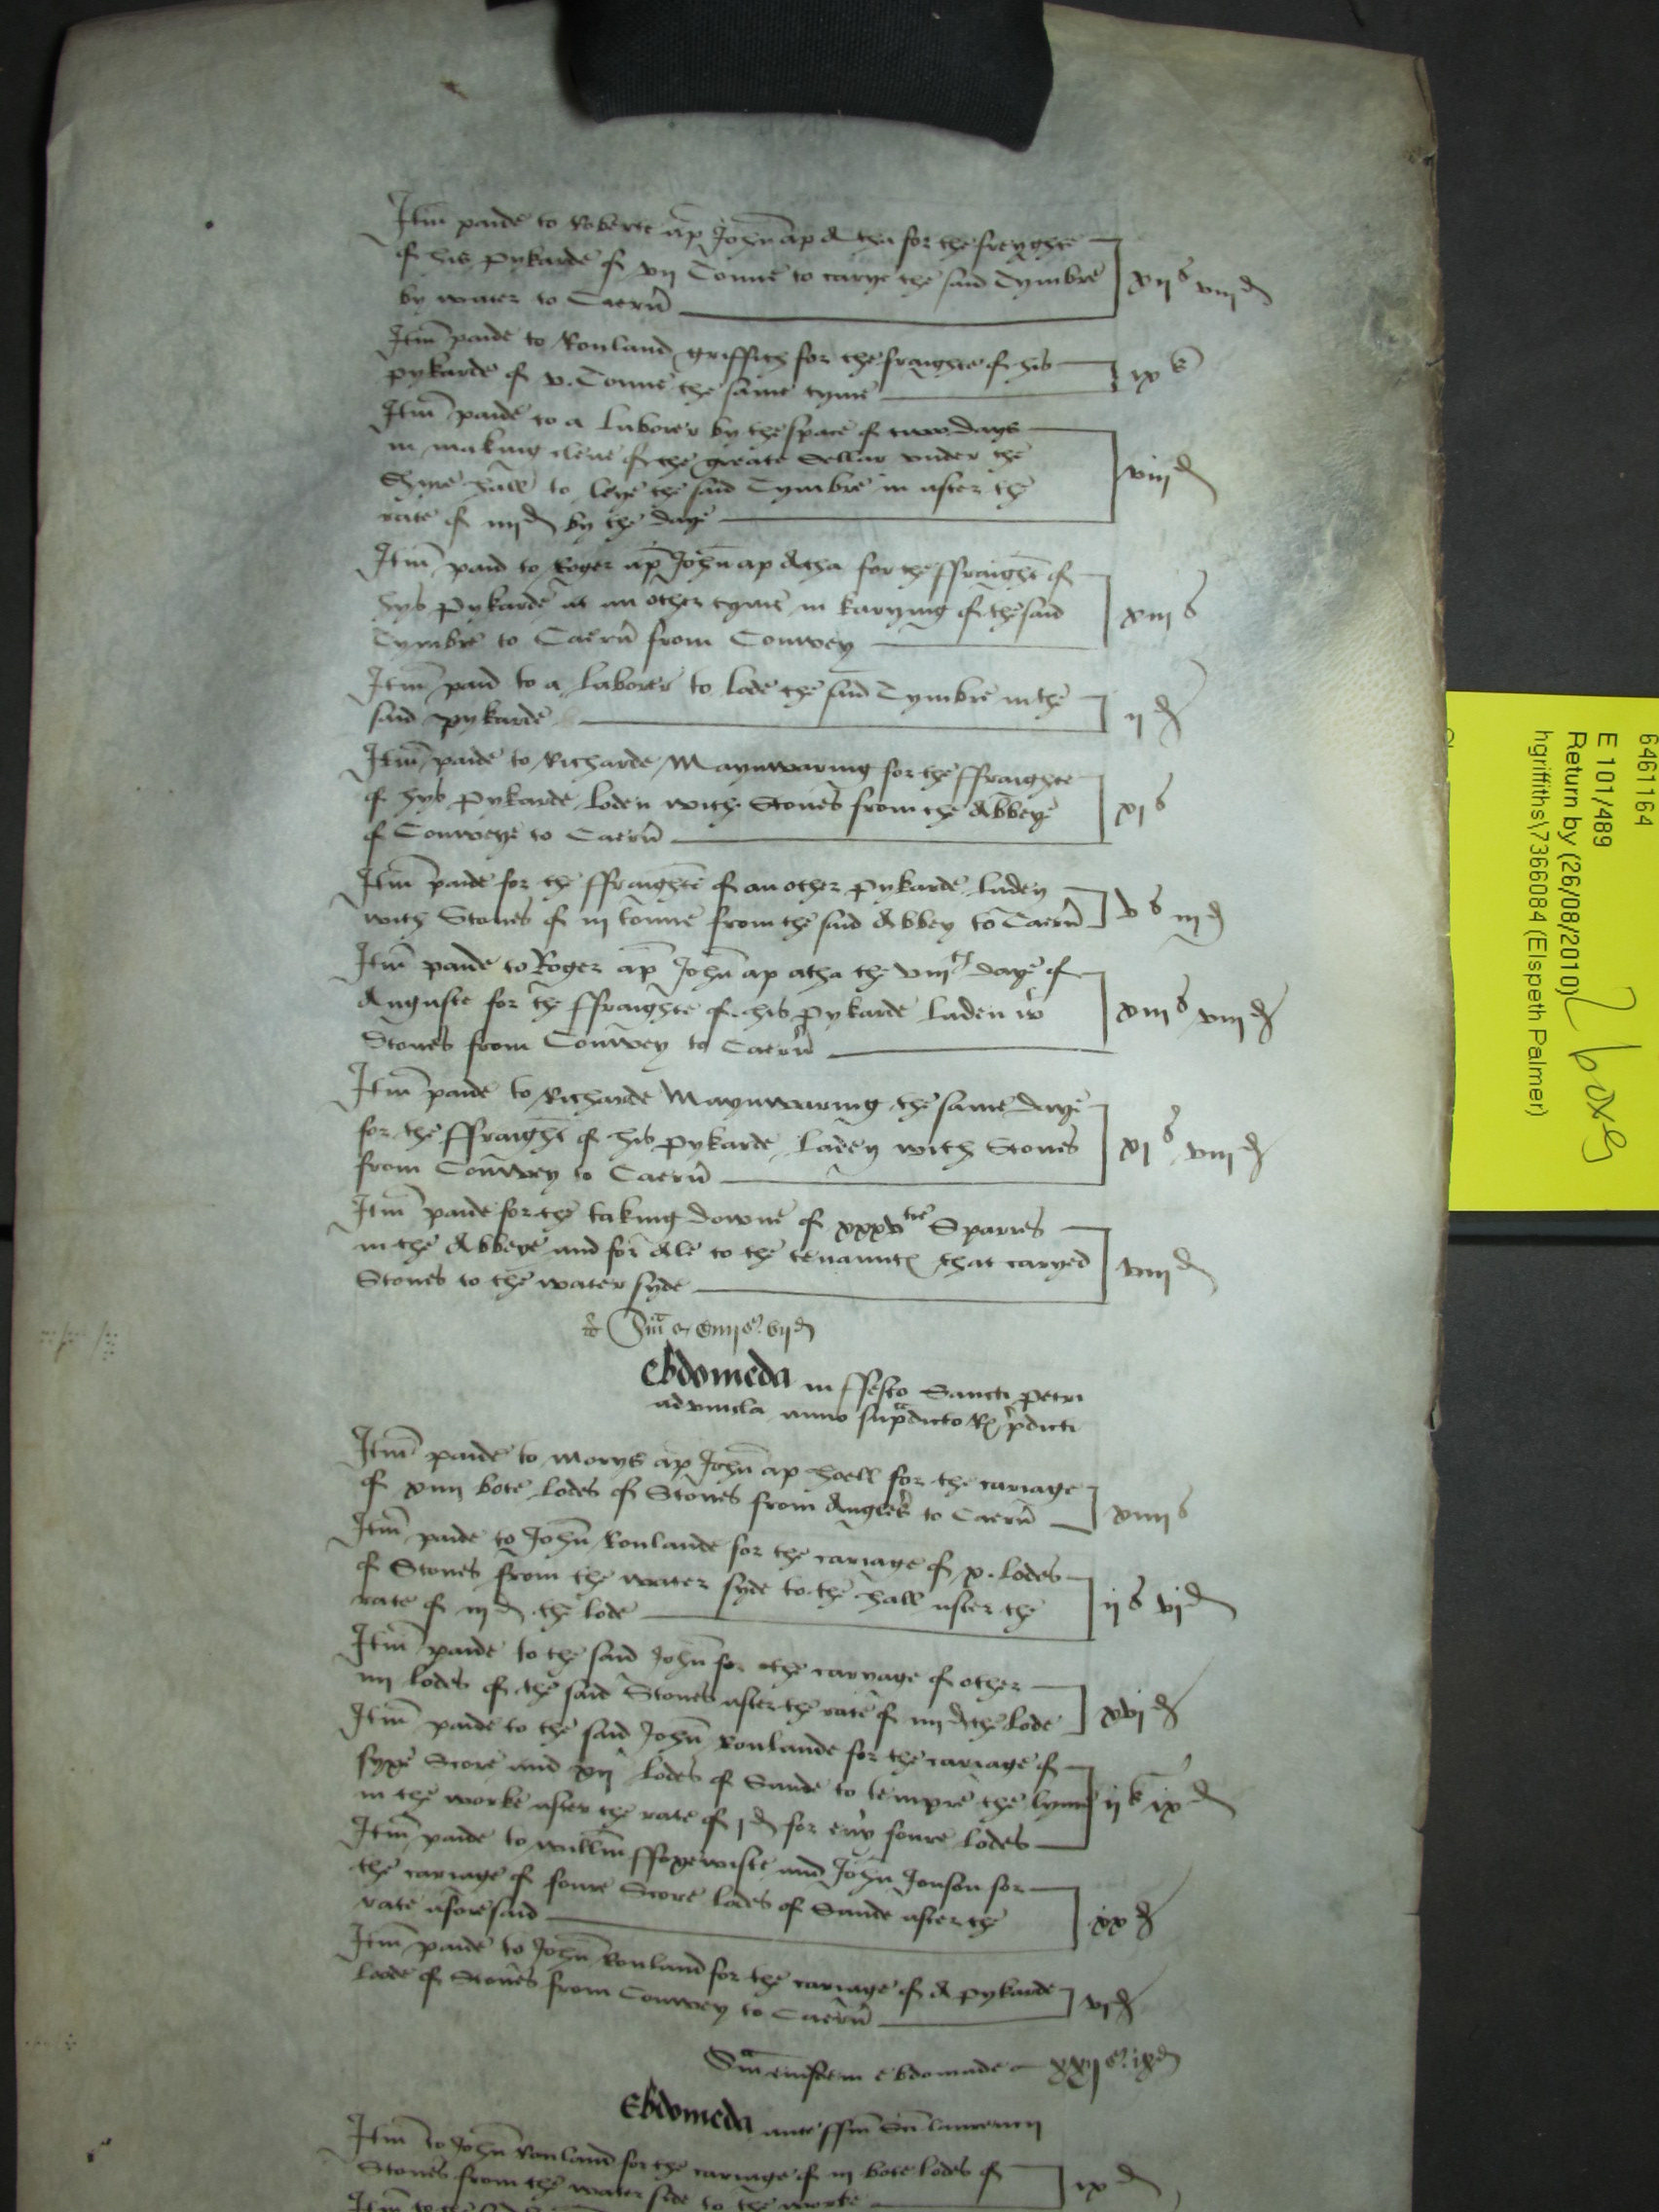 Itm paide to Roberte ap John ap Atha for the freyghte
of his pykarde of vii Tonne to carye the said Tymbre
by water to Caern xiis viiid
Itm paide to Rouland griffith for the fraighte of his
pykarde of v. Tonne the same tyme ix s
Itm paide to a Laborer by the space of two days
in making clene of the greate Sellar under the
Shyre hall to leye the said Tymbre in after the
rate of iiiid by the daye viiid
Itm paid to Roger ap John ap Atha for the ffraight of
hys pykarde at an other tyme in karying of the said
Tymbre to Caern from Conwey xiii s
Itm paid to a Laborer to lade the said Tymbre in the
said pykarde ii d
Itm paide to Richarde Maynwaring for the ffraighte
of hys pykarde Loden with Stones from the Abbeye
of Conweye to Caern xi s
Itm paide for the ffraighte of an other pykarde Laden
with Stones of iii tonne from the said Abbey to Caern v s iiid
Itm paide to Roger ap John ap atha the viiith daye of
Auguste for the ffraighte of his pykarde Laden wt
Stones from Conwey to Caern xiiis viiid
Itm paide to Richarde Maynwaring the same daye
for the ffraight of his pykarde Laden with Stones
from Conwey to Caern xis viiid
Itm paide for the taking downe of xxxvtie Sparres
in the Abbeye and for Ale to the tenauntes that caryed
Stones to the water syde viiid
Sma
Ebdomeda in ffesto Sancti petri
advincla anno supradicto R predicti
Itm paide to Morys ap John ap Hoell for the cariage
of xiiii bote Lodes of Stones from Angles to Caern xiiii s
Itm paide to John Roulande for the cariage of x. Lodes
of Stones from the water syde to the hall after the
rate of iiid the lode iis vid
Itm paide to the said John for the caryage of other
iiii Lodes of the said Stones after the rate of iiiid the Lode xvi d
Itm paide to the said John Roulande for the cariage of
syxe Score and xii Lodes of Sande to tempre the lyme
in the worke after the rate of jd for eviy foure Lodes iis ixd
Itm paide to Willm ffoxewiste and John Jonson for
the cariage of foure Score Lodes of Sande after the
rate aforesaid xx d
Itm paide to John Rouland for the cariage of A pykarde
Loode of Stones from Conwey to Caern vi d
Sma eiusdem ebdomade xxiis ixd
Ebdomeda ante ffm Sci laurencii
Itm to John Rouland for the cariage of iii bote Lodes of
Stones from the water side to the worke ix d
Itm to the
6461164
E 101/489
Return by (26/08/2010)
hgriffiths\7366084 (Elspeth Palmer)
2 boxes